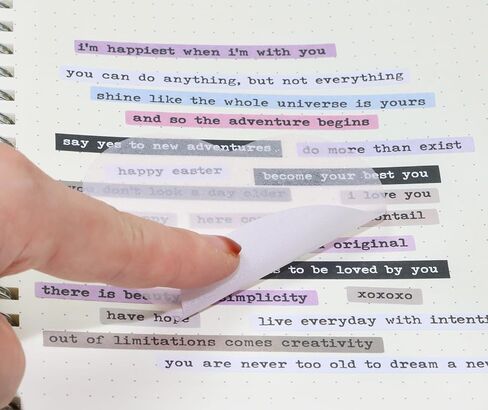 i'm happiest when i'm with you
you can do anything, but not everything
shine like the whole universe is yours
and so the adventure begins
say yes to new adventures.
do more than exist
happy easter
become your best you
you don't look a day older
i love you
here
original
s to be loved by you
there is beauty simplicity
xoxoxo
have hope
live everyday with intenti
out of limitations comes creativity
you are never too old to dream a new